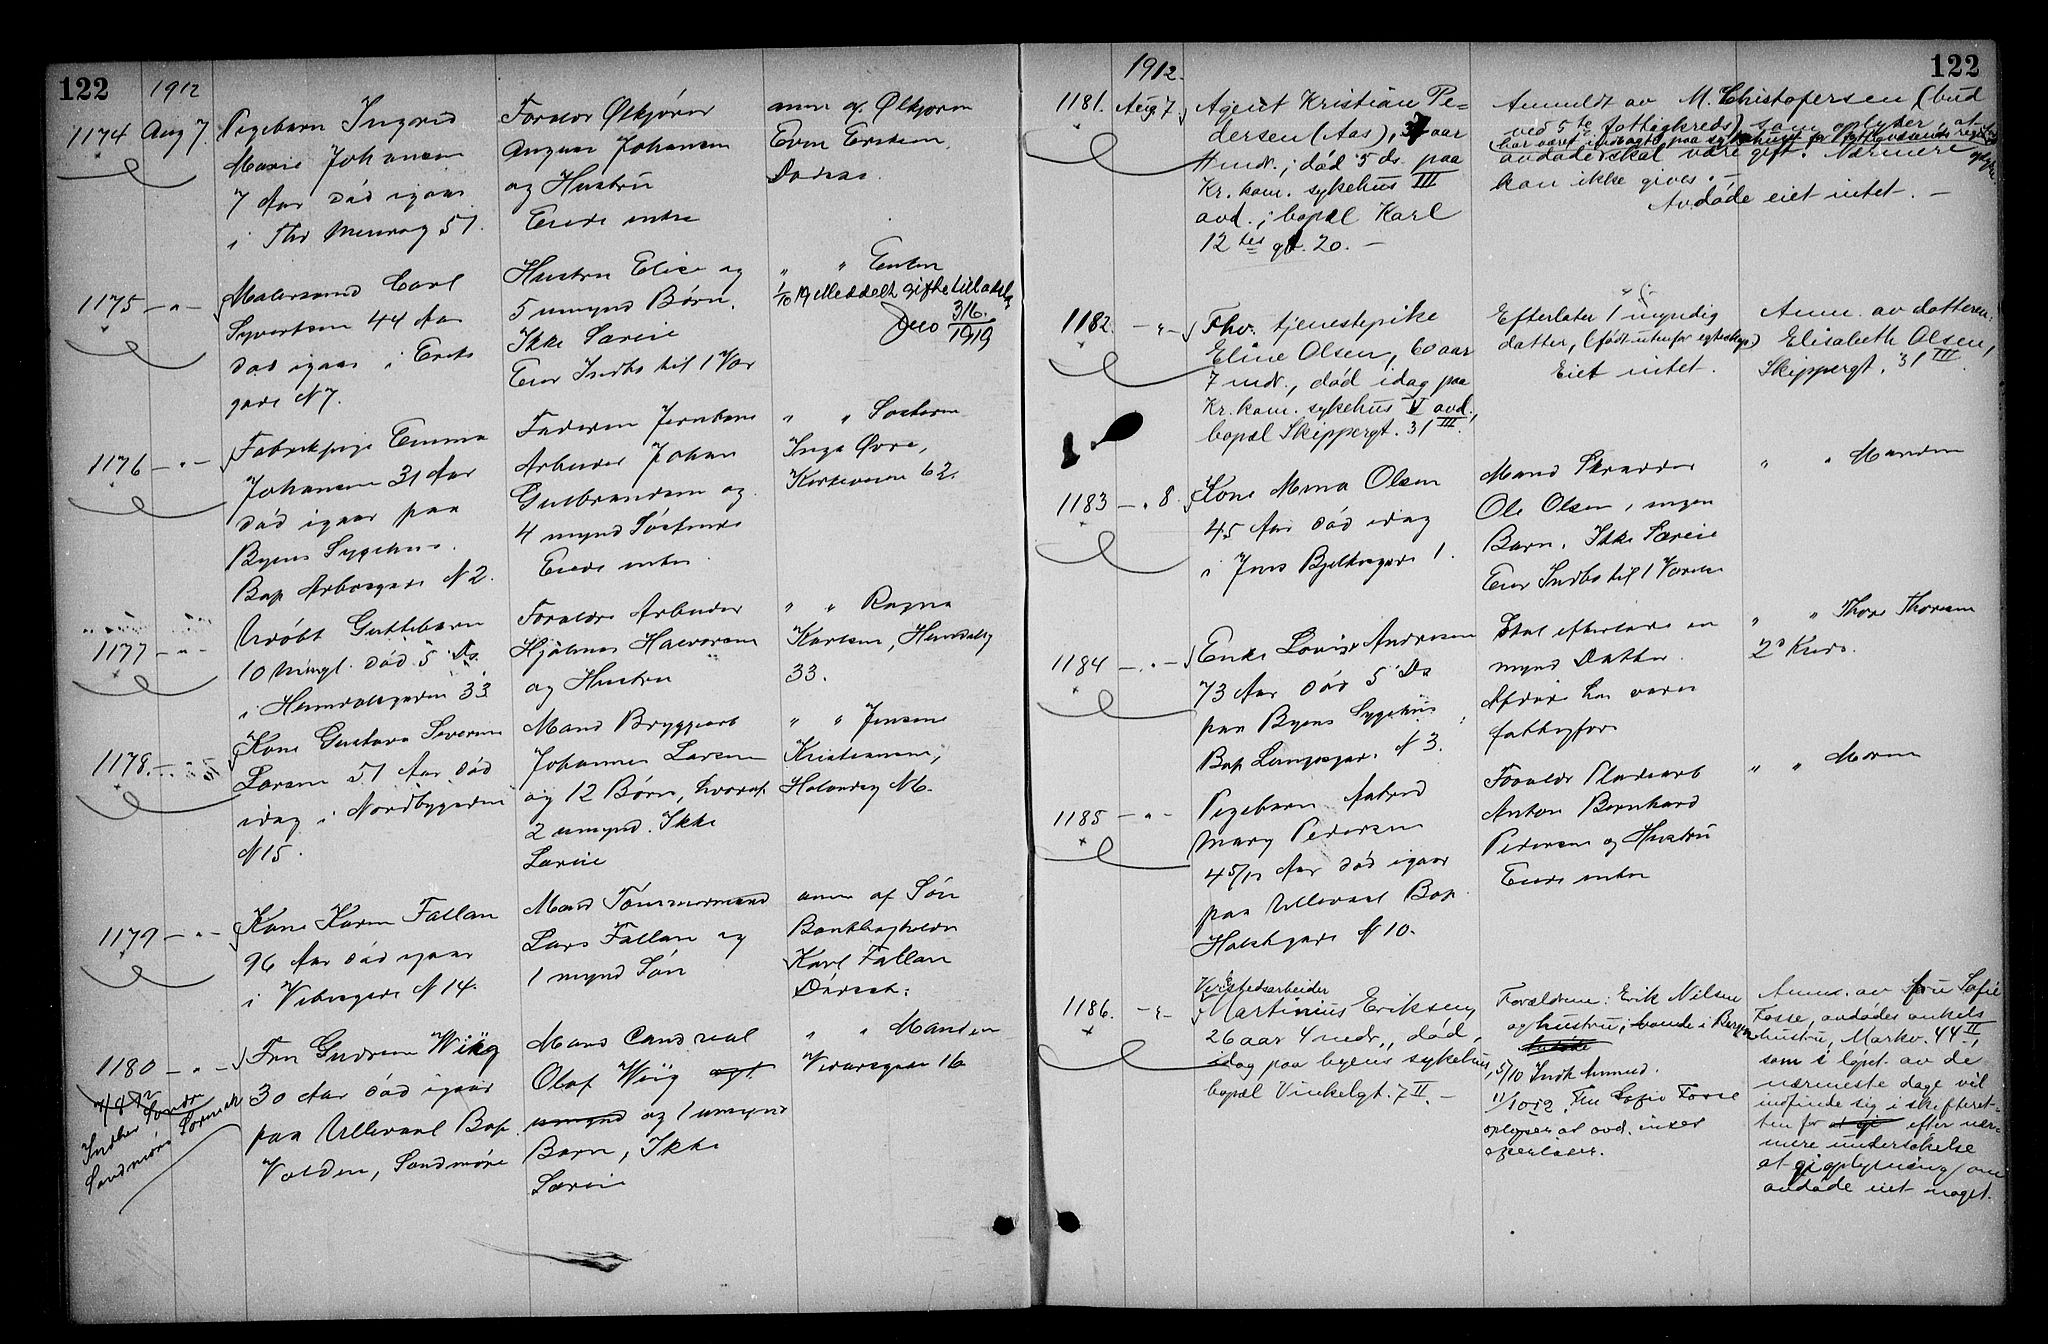 122
1912
1174 Aug 7.
Pigebarn Ingrid
Marie Johansen
7 Aar død igaar
i Thv Meyersg 57.
Forældr Ølkjører
August Johansen
og Hustru
Eiede intet
anm af Ølkjører
Even Eriksen,
1175 — " —
Malersvend Carl
Syvertsen 44 Aar
død igaar i Eriks
gade N 7.
Hustru Elise og
5 umynd Børn.
Ikke Særeie
Eier Indbo til 1 Vær
" " Enken
1/10 19 Meddelt giftetilladelse
Jeco 316/1919
1176 — " —
Fabrikpige Emma
Johansen 31 Aar
død igaar paa
Byens Sygehus.
Bop Arbosgade N 2.
Faderen Jernbane
Arbeider Johan
Gulbrandsen og
4 mynd Søskende
Eiede intet
" " Søsteren
Inga Øvre,
Kirkeveien 62.
1177 — " —
Udøbt Guttebarn
10 Mingt. død 5 Ds
i Heimdalsgaden 33
Forældre Arbeider
Hjalmar Halvorsen
og Hustru
" " Ragna
Karlsen, Heimdalsg
33.
1178. — " —
Kone Gustava Severine
Larsen 51 Aar død
idag i Nordbygaden
N 15.
Mand Bryggearb
Johannes Larsen
og 12 Børn, hvoraf
2 umynd. Ikke
Særeie
" " Jensine
Kristiansen,
1179 — " —
Kone Karen Fallan
96 Aar død igaar
i Vibesgade N 14.
Mand Tømmermand
Lars Fallan og
1 mynd Søn
anm af Søn
Bankbogholder
Karl Fallan
1180 — " —
Fru Gudrun Wiig
30 Aar død igaar
paa Ullevaal Bop.
Volden, Søndmøre
Mand Cand real
Olaf Wiig og 1
umynd og 1 umynd
Barn, Ikke
Særeie
" " Manden
Vidarsgade 16
Søndmøre Sorensk
122
1912.
1181. Aug. 7
Agent Kristian Pe-
dersen (Aas), aar
mdr.; død 5 ds. paa
Kr. kom. sykehus III
avd.; bopæl Karl
12tes gt. 20. —
Anmeldt av M. Christofersen (bud
ved 5te fattigkreds) som oplyser, at
avdøde skal være gift. Nærmere oplysn.
kan ikke gives. —
Avdøde eiet intet. —
1182. — " —
Fhv. tjenestepike
Eline Olsen, 60 aar
7 mdr., død idag paa
Kr. kom. sykehus V avd.,
bopæl Skippergt. 31 III.
Efterlater 1 myndig
datter, (født utenfor egteskap)
Eiet intet.
Anm. av datteren:
Elisabeth Olsen,
Skippergt. 31 III.
1183 — " 8.
Kone Mina Olsen
45 Aar død idag
i Jens Bjelkesgade 1.
Mand Skrædder
Ole Olsen, ingen
Barn. Ikke Særeie
Eier Indbo til 1 Værelse
" " Manden
1184 — " —
Enke Lovise Andresen
73 Aar død 5 Ds
paa Byens Sygehus
Bop Langesgade N 3.
Skal efterlade en
mynd Datter.
Afdøde har været
fattigfors
" " Thora Thoresen
2d Kreds.
1185 — " —
Pigebarn Astrid
Mary Pedersen
4 5/12 Aar død igaar
paa Ullevaal Bop
Holstgade N 10.
Forældr Pladsarb
Anton Bernhard
Pedersen og Hustru
Eiede intet
" " Moren
1186. — " —
Verkstedsarbeider
Martinius Eriksen,
26 aar 4 mdr., død,
idag paa byens sykehus,
bopæl Vinkelgt. 7 II. —
Forældrene: Erik Nilsen
og hustru; boende i Bergen
avdøde
5/10 Indk Anmeld.
11/10 12. Fru Sofie Fosse
oplyser at avd. intet
efterlater.
Anm. av fru Sofie
Fosse, avdødes onkels
hustru, Markv. 44 II,
som i løpet av de
nærmeste dage vil
indfinde sig i skifteret-
ten for at gi efter nær-
mere undersøkelse
at gi oplysning om
avdøde eiet noget.